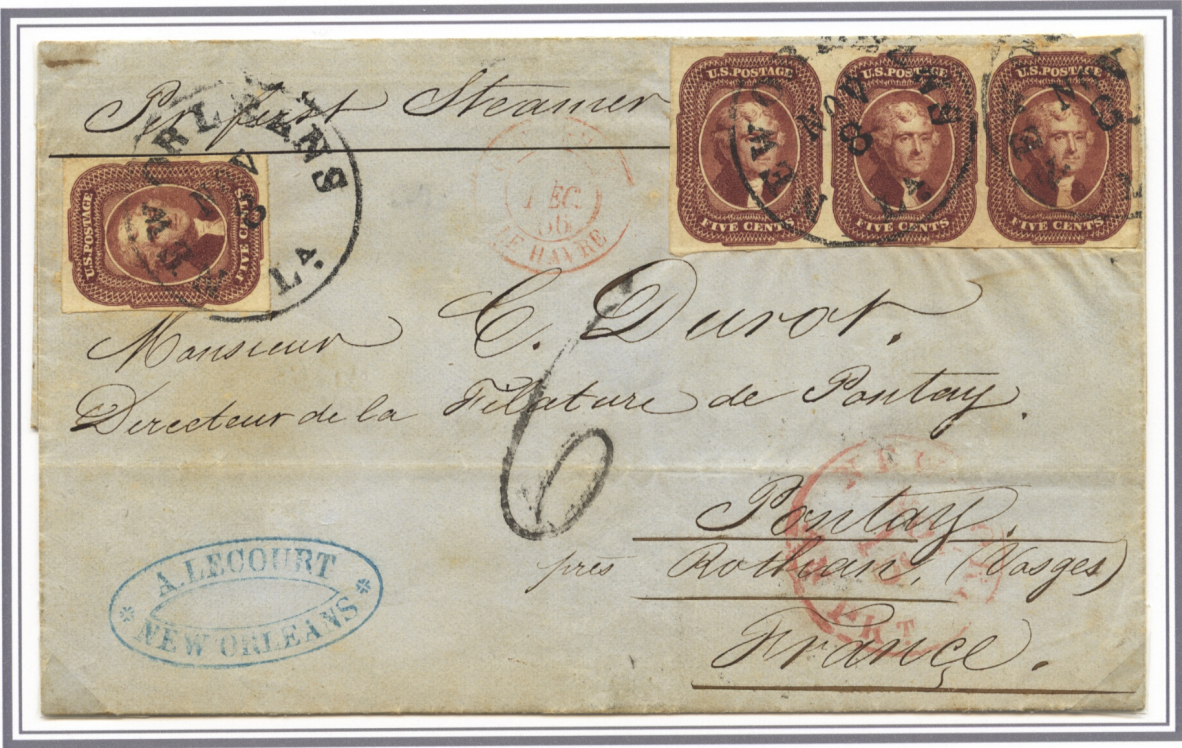 Per first Steamer
U.S. POSTAGE
FIVE CENTS
U.S. POSTAGE
FIVE CENTS
U.S. POSTAGE
FIVE CENTS
NOV
8
LE HAVRE
U.S. POSTAGE
FIVE CENTS
ORLEANS
8
LA
Monsieur C. Durot.
Directeur de la Filature de Pontay.
6
Pontay.
près Rothuan, (Vosges)
France.
A. LECOURT
NEW ORLEANS
PKT